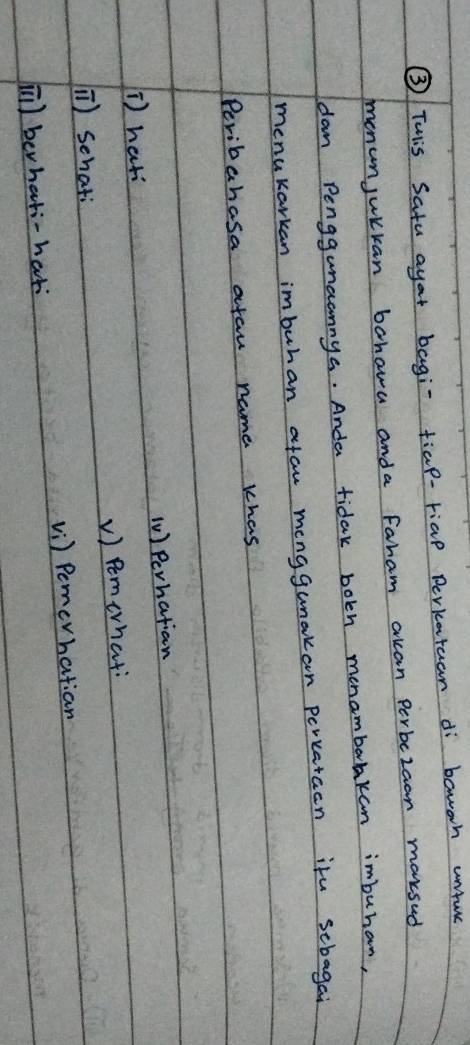 ③ Tulis Satu ayat bagi- tiap-tiap Perkataan di bawah untuk
menunjukkan bahawa anda faham akan Perbezaan maksud
dan Penggunaannya. Anda tidak boleh menambahkan imbuhan,
menukarkan imbuhan atau menggunakan perkataan itu sebagai
Peribahasa atau nama khas
i) hati iv) Perhatian
ii) Sehati v) Pemerhati
iii) berhati-hati vi) Pemerhatian